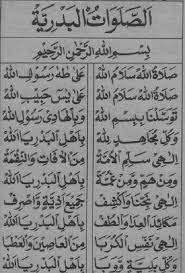 اَلصَّلَوَاتُ الْبَدْرِيَّةُ
بِسْمِ اللهِ الرَّحْمٰنِ الرَّحِيْمِ
صَلَاةُ اللهِ سَلَامُ اللهِ عَلَى طٰهَ رَسُوْلِ اللهِ
صَلَاةُ اللهِ سَلَامُ اللهِ عَلَى يٰسٓ حَبِيْبِ اللهِ
تَوَسَّلْنَا بِبِسْمِ اللهِ وَبِالْهَادِيْ رَسُوْلِ اللهِ
وَكُلِّ مُجَاهِدٍ لِلّٰهِ بِاَهْلِ الْبَدْرِ يَا اَللهُ
اِلٰهِيْ سَلِّمِ الْاُمَّةَ مِنَ الْاٰفَاتِ وَالنِّقْمَةِ
وَمِنْ هَمٍّ وَمِنْ غُمَّةٍ بِاَهْلِ الْبَدْرِ يَا اَللهُ
اِلٰهِيْ نَجِّنَا وَاكْشِفْ جَمِيْعَ اَذِيَّةٍ وَاصْرِفْ
مَكَائِدَ الْعِدَا وَالْطُفْ بِاَهْلِ الْبَدْرِ يَا اَللهُ
اِلٰهِيْ نَفِّسِ الْكُرَبَا مِنَ الْعَاصِيْنَ وَالْعَطْبَا
وَكُلِّ بَلِيَّةٍ وَوَبَا بِاَهْلِ الْبَدْرِ يَا اَللهُ